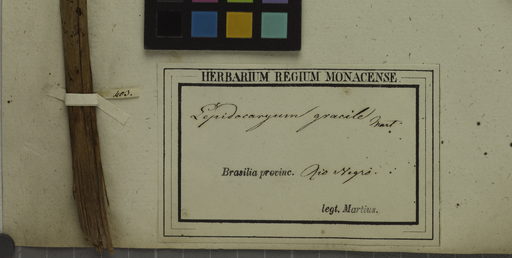 403.
HERBARIUM REGIUM MONACENSE.
Lepidocaryum gracile Mart.
Brasilia provinc. Rio Negro.
legt. Martius.